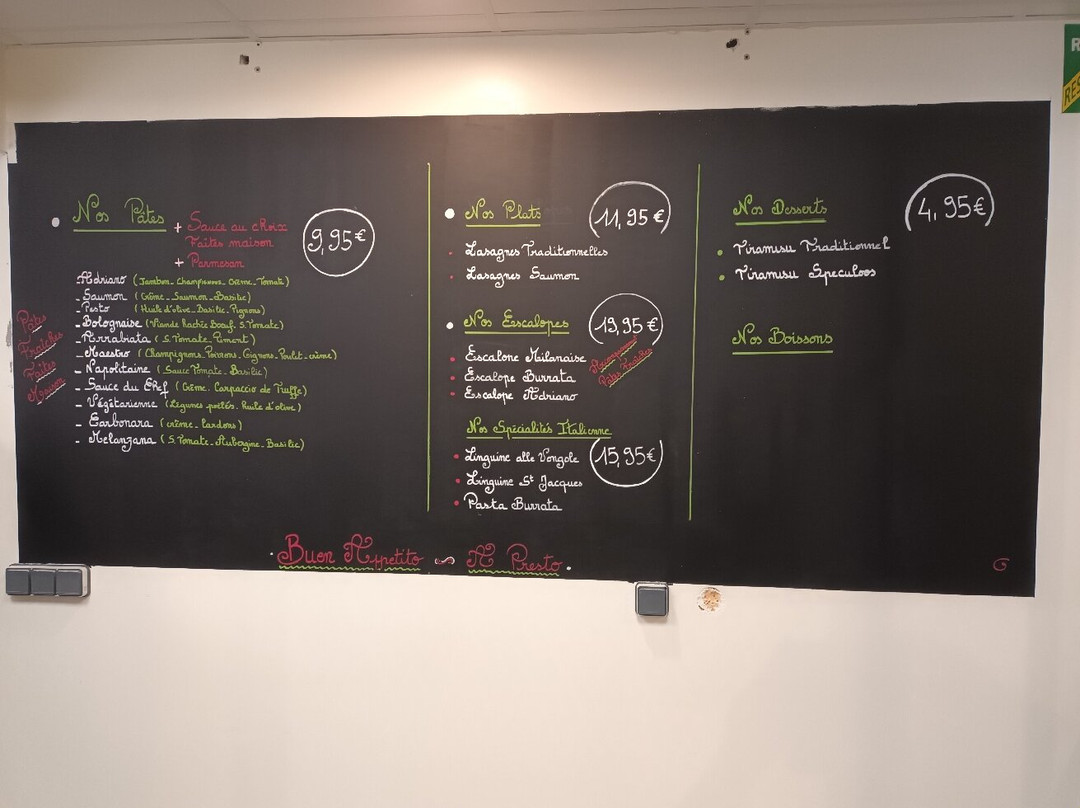 Nos Pâtes
+ Sauce au choix
Faites maison
+ Parmesan
9,95€
Pâtes
Fraîches
Faites
Maison
Adriano (Jambon_Champignons_Crème_Tomate)
_ Saumon (Crème_Saumon_Basilic)
_ Pesto (Huile d'olive_Basilic_Pignons)
_ Bolognaise (Viande Hachée Boeuf_S.Tomate)
_ Arrabiata (S.Tomate_Piment)
_ Maestro (Champignons_Poivrons_Oignons_Poulet_crème)
_ Napolitaine (Sauce Tomate_Basilic)
_ Sauce du Chef (Crème_Carpaccio de Truffe)
_ Végétarienne (Légumes poêlés_Huile d'olive)
_ Carbonara (crème_lardons)
_ Melanzana (S.Tomate_Aubergine_Basilic)
Nos Plats
11,95€
Lasagnes Traditionnelles
Lasagnes Saumon
Nos Escalopes
19,95€
Escalope Milanaise
Escalope Burrata
Escalope Adriano
Pâtes Fraîches
Nos Spécialités Italienne
15,95€
Linguine alle Vongole
Linguine St Jacques
Pasta Burrata
Nos Desserts
4,95€
Tiramisu Traditionnel
Tiramisu Speculoos
Nos Boissons
Buon Appetito ~ A Presto.